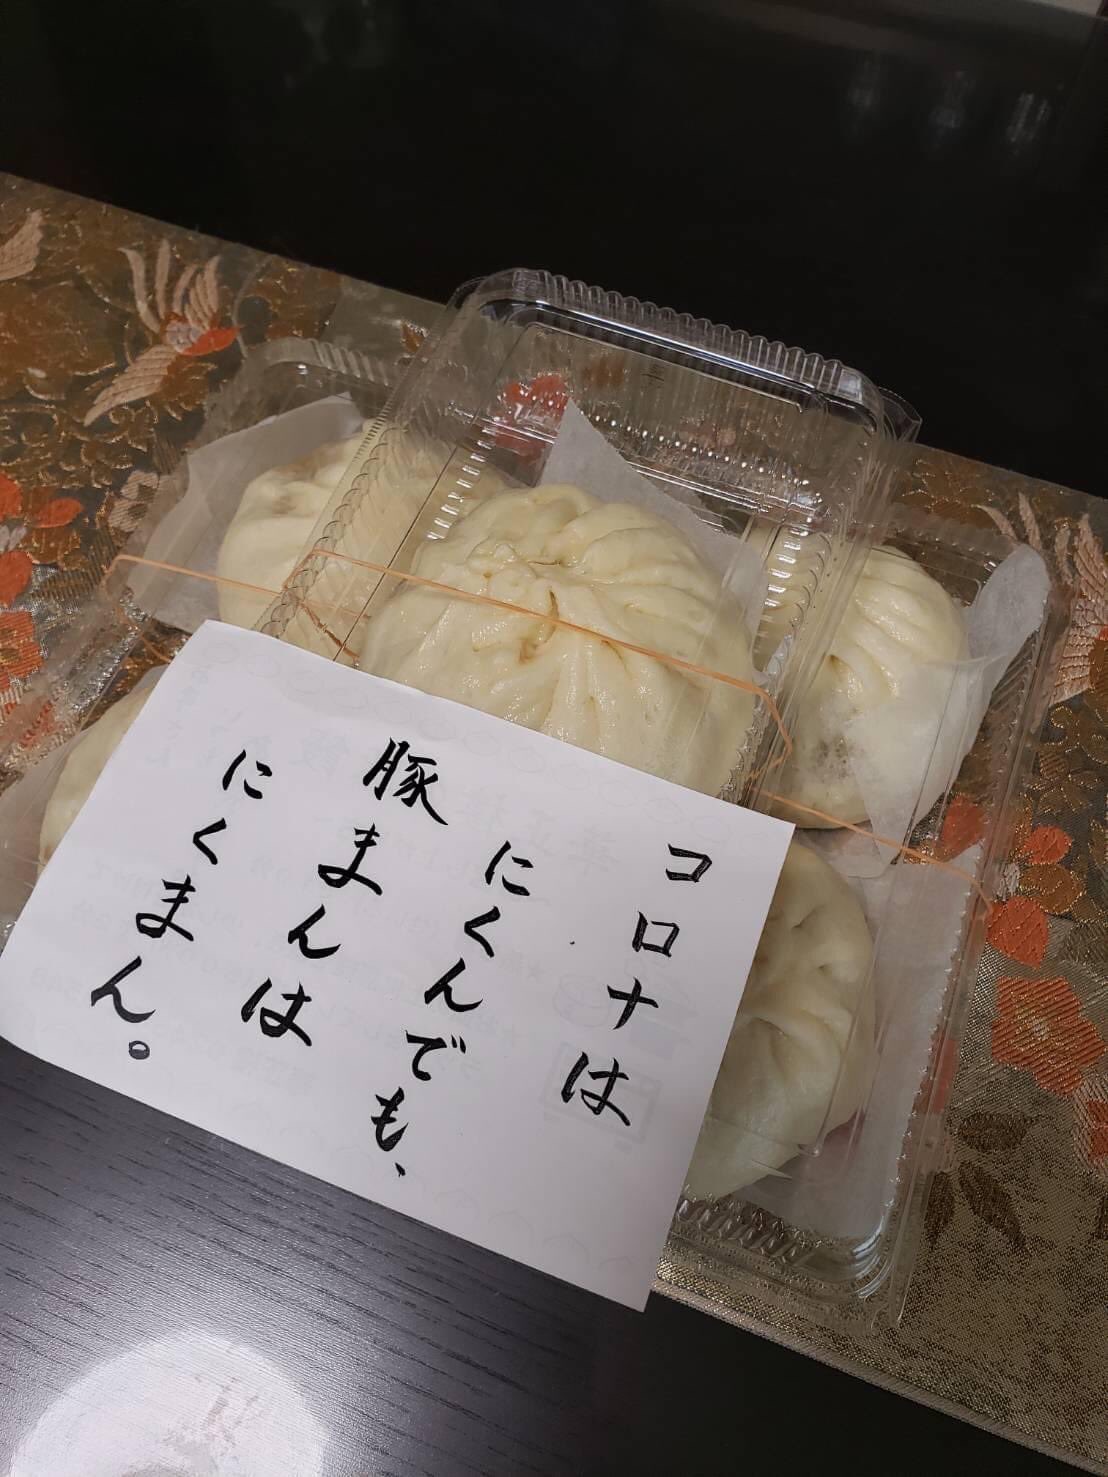 コロナは
にくんでも、
豚まんは
にくまん。